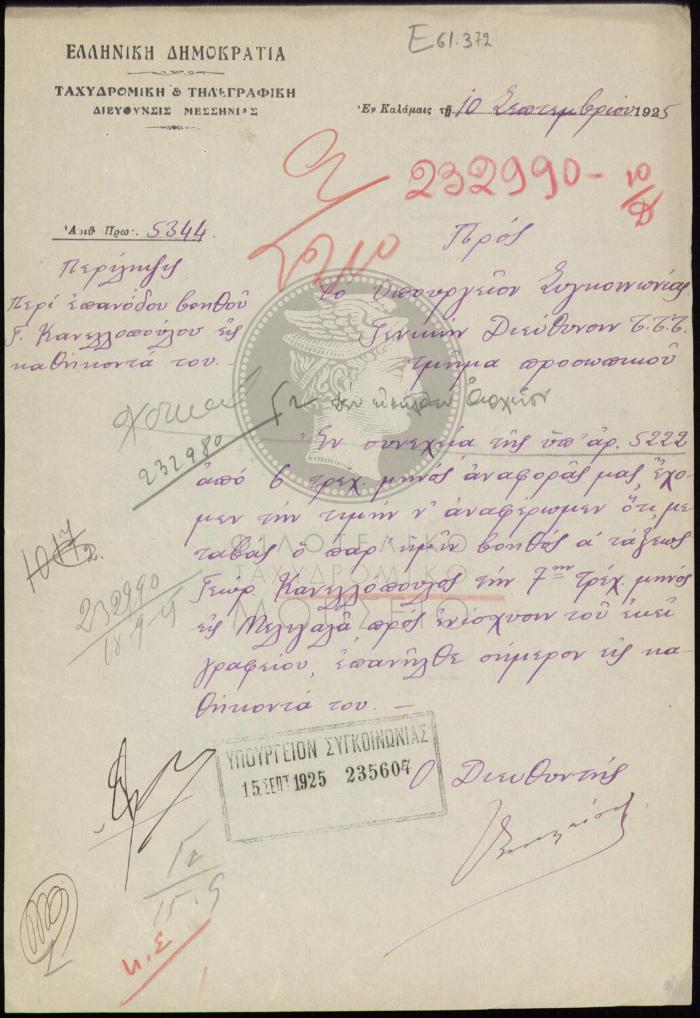 Ε61.372
ΕΛΛΗΝΙΚΗ ΔΗΜΟΚΡΑΤΙΑ
ΤΑΧΥΔΡΟΜΙΚΗ & ΤΗΛΕΓΡΑΦΙΚΗ
ΔΙΕΥΘΥΝΣΙΣ ΜΕΣΣΗΝΙΑΣ
Ἐν Καλάμαις τῇ 10 Σεπτεμβρίου 1925
232990- 10/
Ἀριθ. Πρωτ. 5344
Πρός
Περίληψις
Περί ἐπανόδου βοηθοῦ
Γ. Κανελλοπούλου εἰς
καθήκοντά του. —
Το Ὑπουργεῖον Συγκοινωνίας
Γενικήν Διεύθυνσιν Τ.Τ.Τ.
τμημα προσωπικοῦ
232980
Ἐν συνεχεία τῆς ὑπ' ἀρ. 5222
ἀπό 6 τρεχ. μηνός ἀναφορᾶς μας, ἔχο-
μεν τήν τιμήν ν' ἀναφέρωμεν ὅτι, με-
ταβάς ὁ παρ' ημῖν βοηθός α' τάξεως
Γεώρ. Κανελλόπουλος τήν 7ην τρέχ. μηνός
εἰς Μελιγαλᾶ πρός ἐνίσχυσιν τοῦ ἐκεῖ
γραφείου, ἐπανῆλθε σήμερον εἰς κα-
θήκοντά του. —
232990
18-9-25
ΦΙΛΟΤΕΛΙΚΟ
ΤΑΧΥΔΡΟΜΙΚΟ
ΜΟΥΣΕΙΟ
ΥΠΟΥΡΓΕΙΟΝ ΣΥΓΚΟΙΝΩΝΙΑΣ
15 ΣΕΠΤ 1925 235607
Ο Διευθυντής
15-9